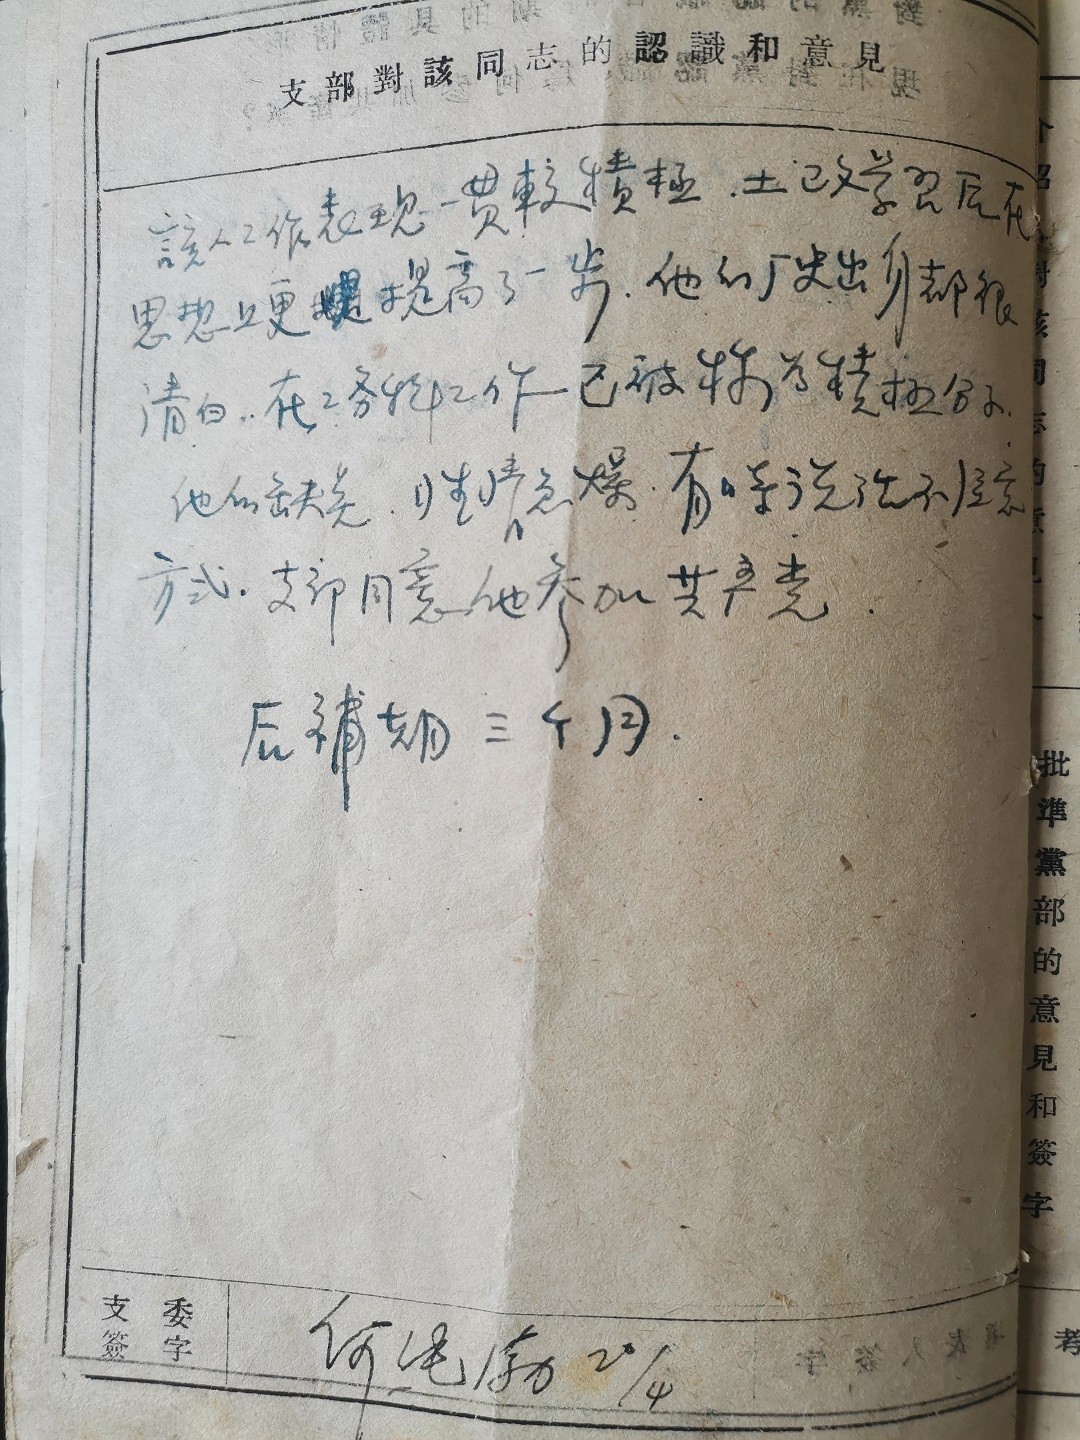 支部對該同志的認識和意見
該人工作表現一貫較積極．土改学習后在
思想上更提高了一步．他的厂史出身都很
清白．在工务科工作已被称为積極分子．
他的缺点．性情急燥．有时说话不注意
方式．支部同意他参加共产党．
后補期三个月．
支委
簽字
何 勃 20/4
批準黨部的意見和簽字